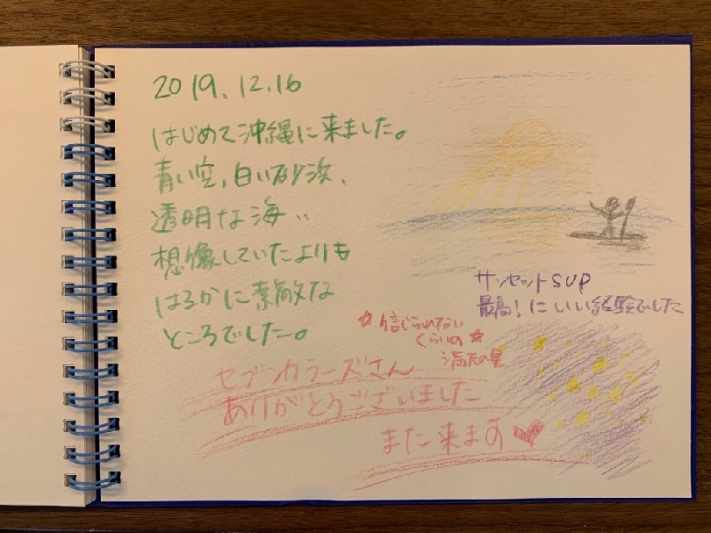 2019.12.16
はじめて沖縄に来ました。
青い空、白い砂浜、
透明な海‥
想像していたよりも
はるかに素敵な
ところでした。
サンセットSUP
最高！にいい経験でした
☆信じられない
くらいの☆
満天の星
セブンカラーズさん
ありがとうございました
また来ます♥